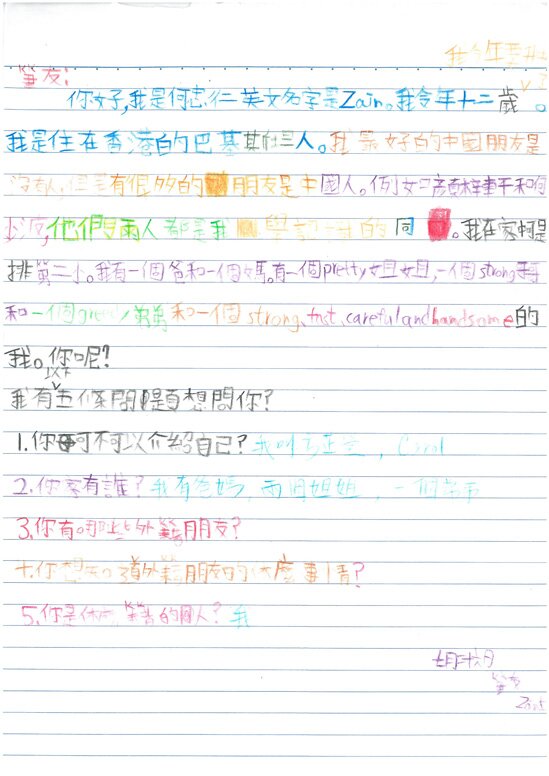 我今年
筆友:
你好,我是何志仁 英文名字是Zain。我今年十二歲。
我是住在香港的巴基其他三人。我最好的中國朋友是
沒有人,但是有很多的 朋友是中國人。例如:
他們兩人都是我 學記 的同 。我在家裡是
排第二小。我有一個爸和一個媽。有一個pretty姐姐,一個strong哥哥
和一個greedy弟弟和一個strong、fast、careful and handsome的
我。你呢?
以下
我有五條問題想問你?
1.你可不可以介紹自己? 我叫 , Carol
2.你家有誰? 我有爸媽,兩個姐姐,一個弟弟
3.你有哪些外籍朋友?
4.你想知道外籍朋友的什麼事情?
5.你是什麼籍的國人? 我
七月二十六日
筆友
Zain